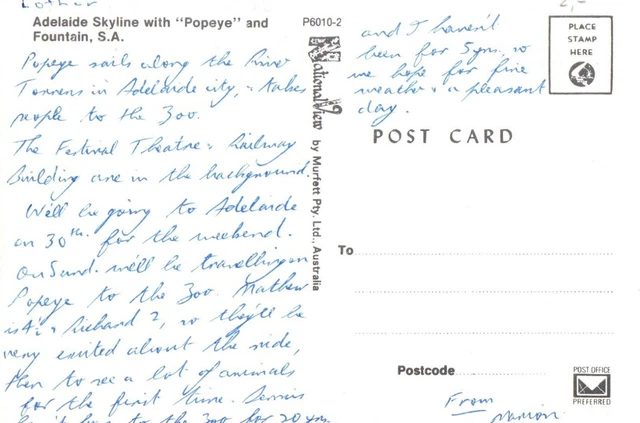 Adelaide Skyline with "Popeye" and
Fountain, S.A.
P6010-2
Popeye sails along the River
Torrens in Adelaide city, & takes
people to the Zoo.
The Festival Theatre & Railway
Building are in the background.
We'll be going to Adelaide
on 30th. for the weekend.
On Sund. we'll be travelling on
Popeye to the Zoo. Mathew
is 4½ & Richard 2, so they'll be
very excited about the ride,
then to see a lot of animals
for the first time. Dennis
to the Zoo for 20 yrs.
and I haven't
been for 5 yrs, so
we hope for fine
weather & a pleasant
day.
National View by Murfett Pty. Ltd., Australia
PLACE
STAMP
HERE
POST CARD
To
Postcode
POST OFFICE
PREFERRED
From
Marion